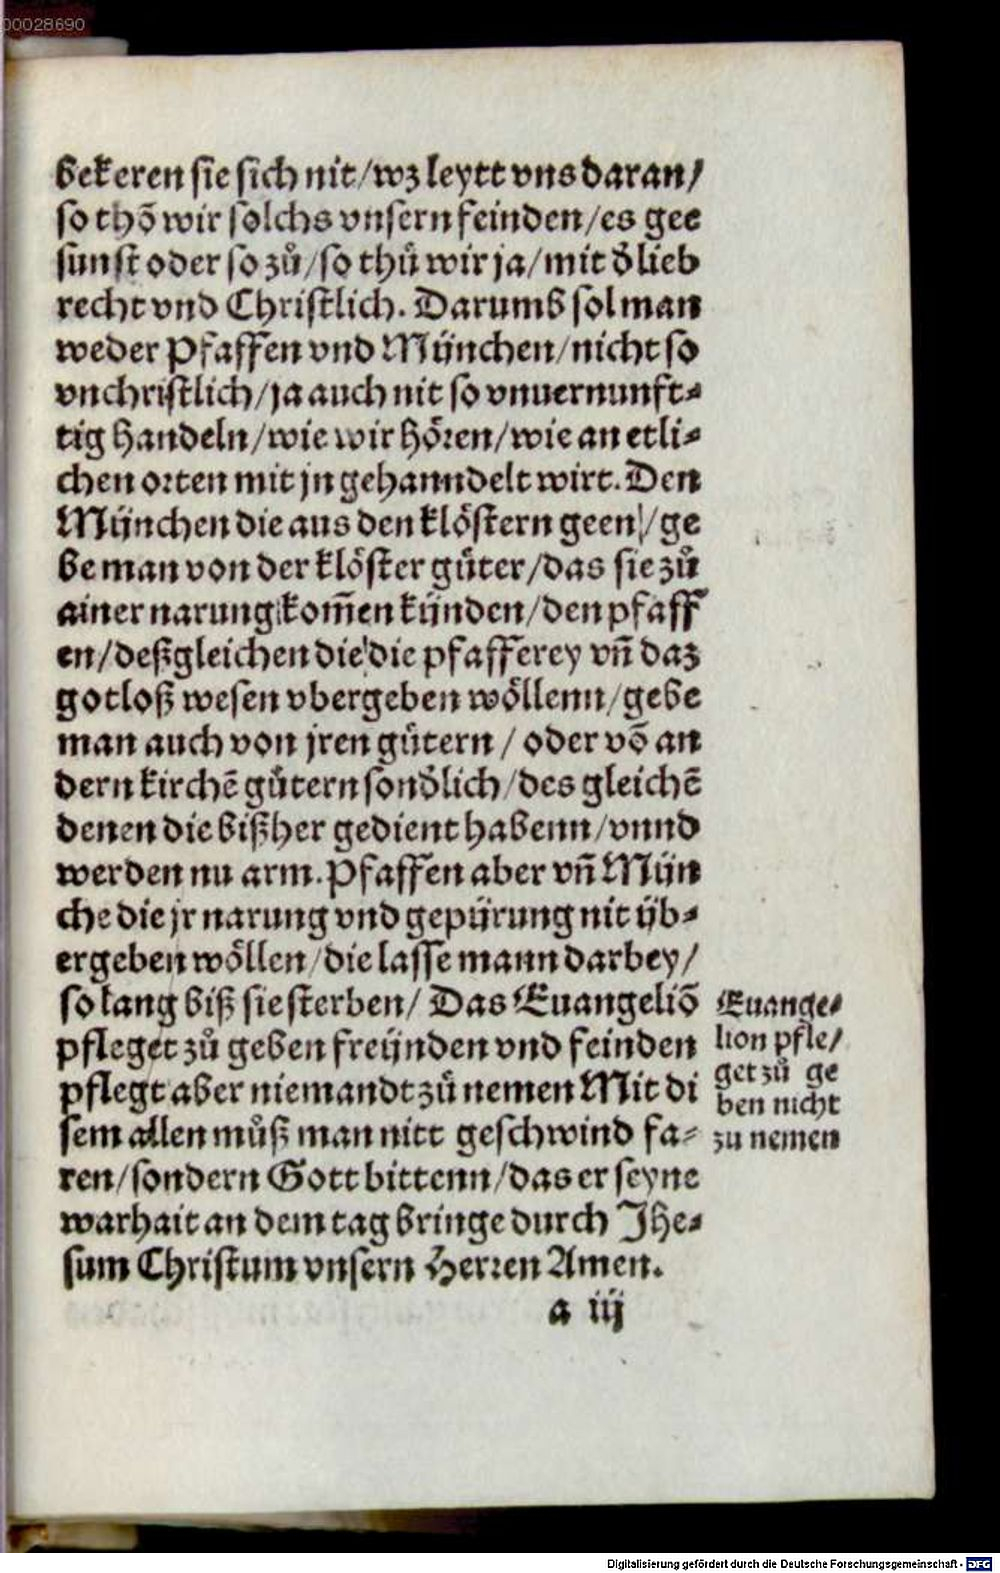 00028690
bekeren sie sich nit/wz leytt vns daran/
so thō wir solchs vnsern feinden/es gee
sunst oder so zů/so thů wir ja/mit d̕ lieb
recht vnd Christlich. Darumb sol man
weder Pfaffen vnd Mijnchen/nicht so
vnchristlich/ja auch nit so vnuernunft⸗
tig handeln/wie wir hören/wie an etli⸗
chen orten mit jn gehanndelt wirt. Den
Mijnchen die aus den klöstern geen/ge
be man von der klöster güter/das sie zů
ainer narung kom̄en kijnden/den pfaff
en/deßgleichen die die pfafferey vn̄ daz
gotloß wesen vbergeben wöllenn/gebe
man auch von jren gütern / oder vō an
dern kirchē gütern sond̕lich/des gleichē
denen die bißher gedient habenn/vnnd
werden nu arm. Pfaffen aber vn̄ Mijn
che die jr narung vnd gepijrung nit ijb⸗
ergeben wöllen/die lasse mann darbey/
so lang biß sie sterben/ Das Euangeliō
pfleget zů geben freijnden vnd feinden
pflegt aber niemandt zů nemen Mit di
sem allen můß man nitt geschwind fa⸗
ren/sondern Gott bittenn/das er seyne
warhait an dem tag bringe durch Jhe⸗
sum Christum vnsern Herren Amen.
a iij
Euange⸗
lion pfle/
get zů ge
ben nicht
zu nemen
Digitalisierung gefördert durch die Deutsche Forschungsgemeinschaft - DFG